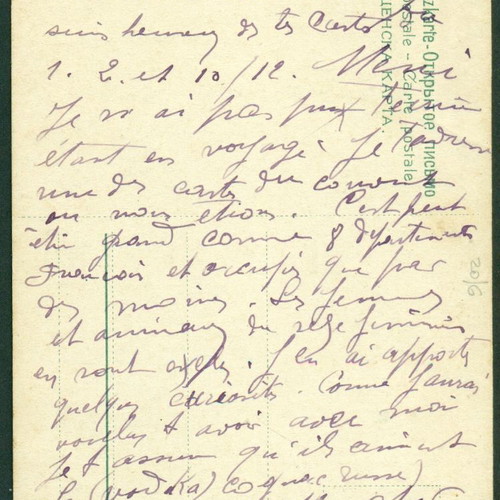 suis heureux de tes cartes
1. 2. et 10/12. Merci
Je n'ai pas pu
étant en voyage. Je
une des cartes du couvent
ou nous étions. C'est
grand comme 8 départements
Francais et occupés que par
des moines. Les femmes
et animaux du sexe féminin
en sont exclus. J'en ai apporté
quelques curiosités. Comme j'aurais
voulu t'avoir avec moi
Je t'assure qu'ils aiment
la (vodka) cognac russe)
zkarte - Открытое письмо
postale – Carte postale
КАРТА.
20/6